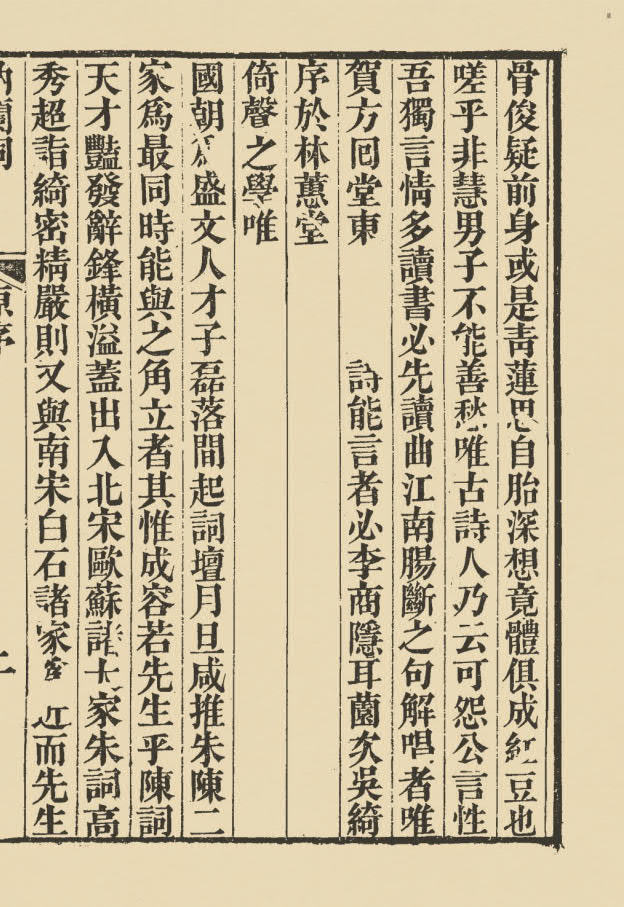 骨俊疑前身或是青蓮思自胎深想竟體俱成紅豆也
嗟乎非慧男子不能善愁唯古詩人乃云可怨公言性
吾獨言情多讀書必先讀曲江南腸斷之句解唱者唯
賀方回堂東 詩能言者必李商隱耳薗次吳綺
序於林蕙堂
倚聲之學唯
國朝爲盛文人才子磊落間起詞壇月旦咸推朱陳二
家爲最同時能與之角立者其惟成容若先生乎陳詞
天才豔發辭鋒橫溢蓋出入北宋歐蘇諸大家朱詞高
秀超詣綺密精嚴則又與南宋白石諸家 近而先生
納蘭詞 原序